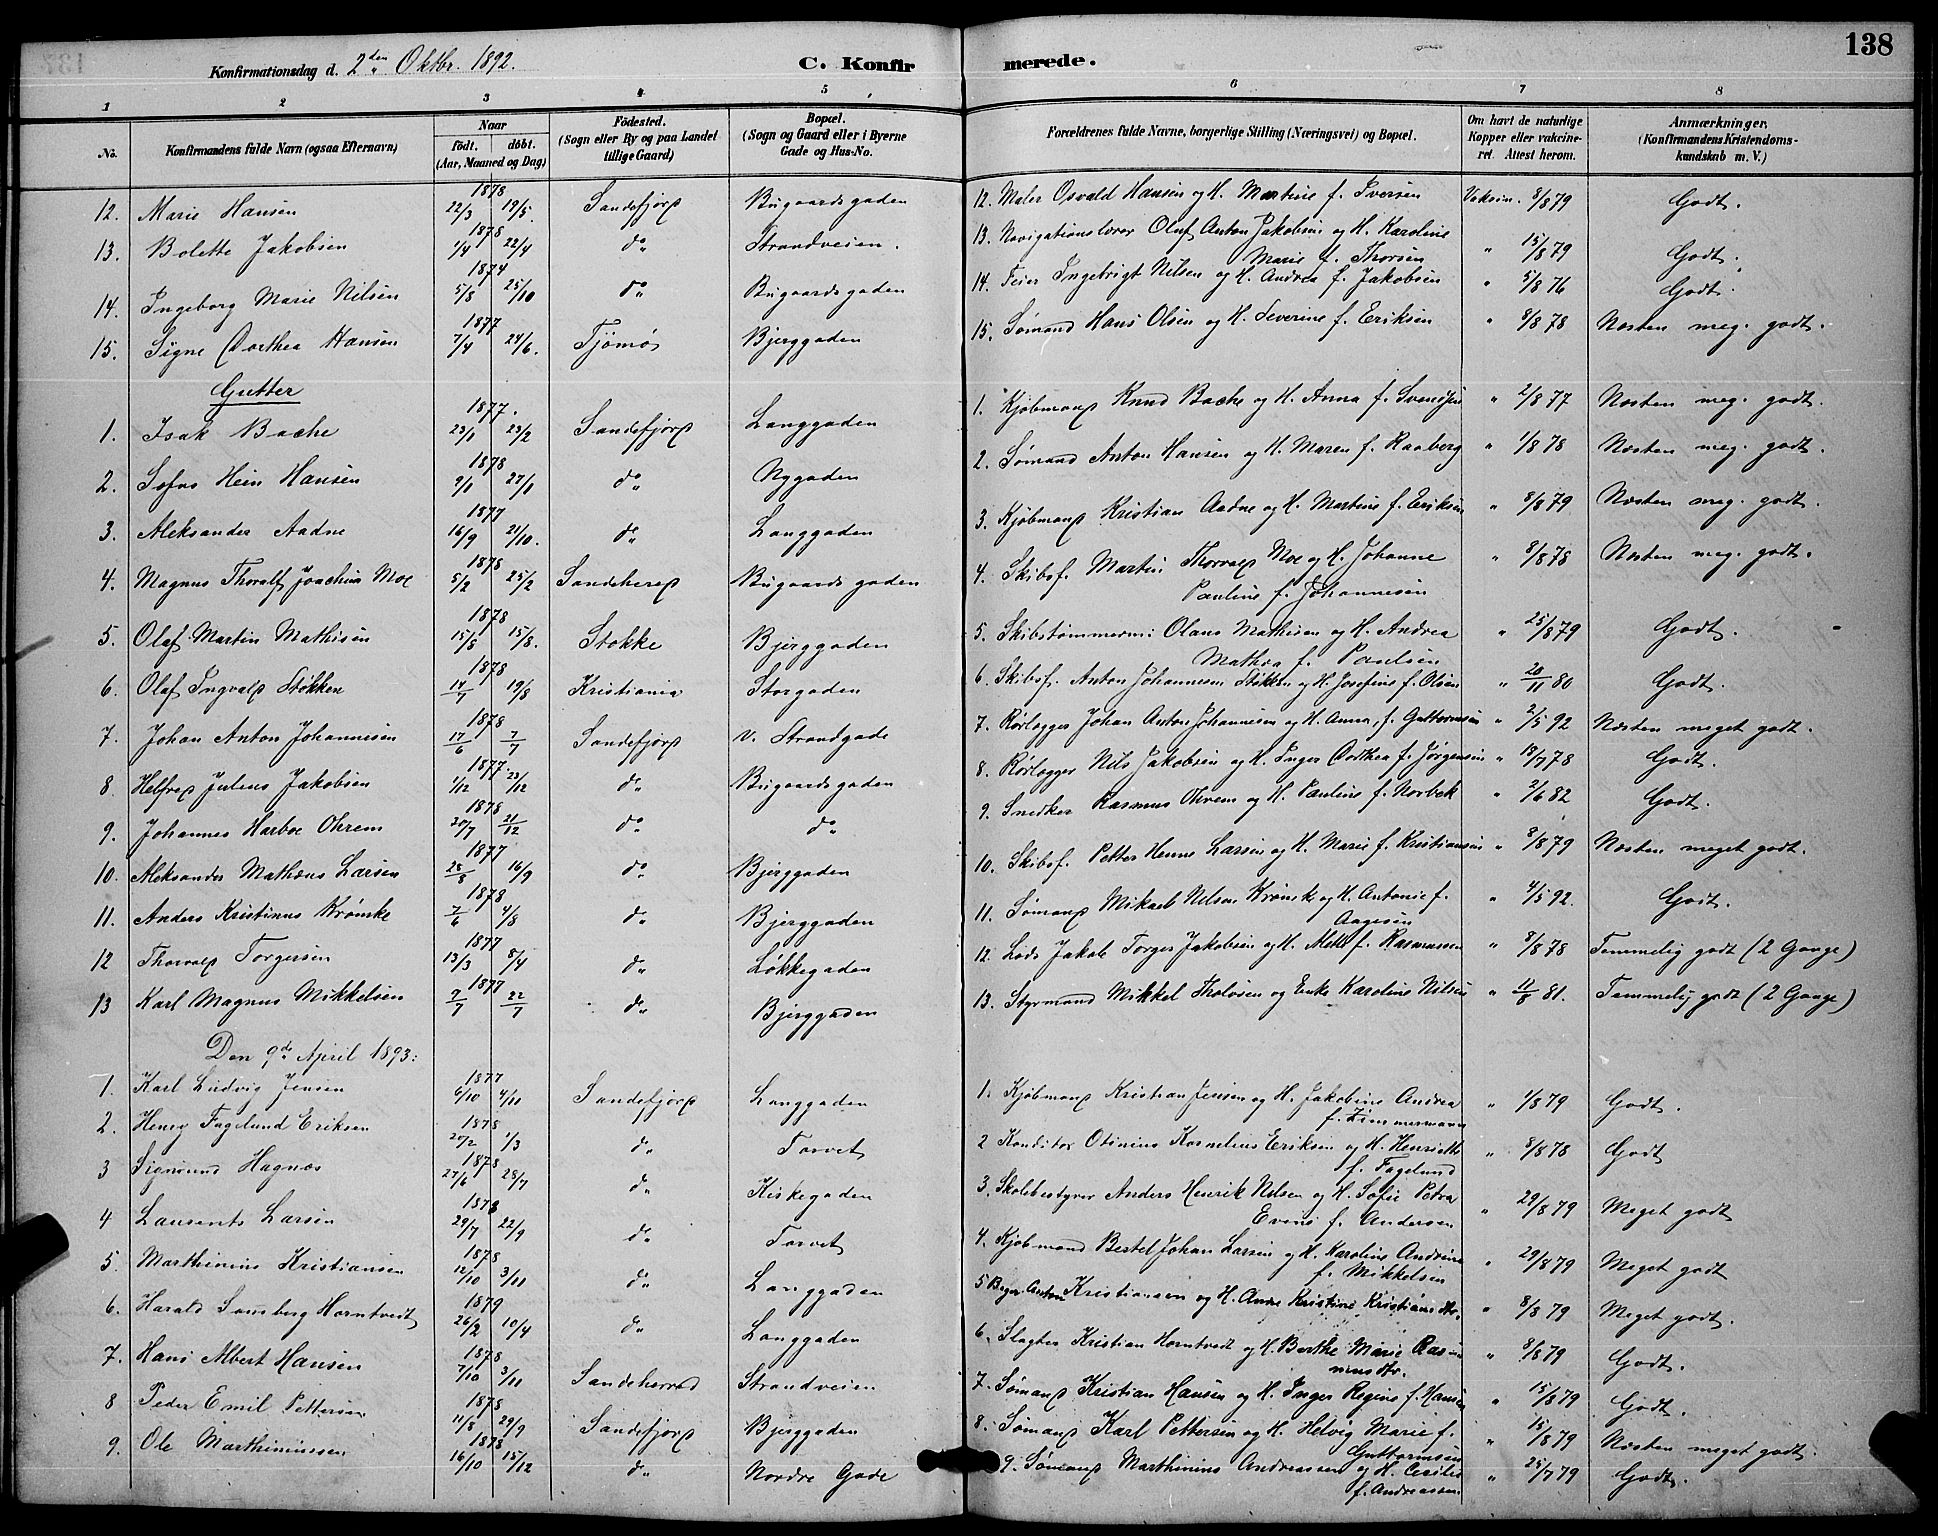 138
Konfirmationsdag d. 2den Oktbr. 1892.
C. Konfirmerede.
1 2 3 4 5 6 7 8
No. Konfirmandens fulde Navn (ogsaa Efternavn) Naar født. døbt. (Aar, Maaned og Dag) Födested. (Sogn eller By og paa Landet tillige Gaard) Bopæl. (Sogn og Gaard eller i Byerne Gade og Hus-No. Forældrenes fulde Navne, borgerlige Stilling (Næringsvei) og Bopæl. Om havt de naturlige Kopper eller vakcineret. Attest herom. Anmærkninger, (Konfirmandens Kristendomskundskab m. V.)
12. Marie Hansen 1878 22/3 19/5. Sandefjord Bugaardsgaden 12. Maler Osvald Hansen og H. Martine f. Iversen Vaksin. 8/8 79 Godt.
13. Bolette Jakobsen 1878 1/4 22/4 do Strandveien. 13. Navigationslærer Olaf Anton Jakobsen og H. Karoline Marie f. Thorsen " 15/8 79 Godt.
14. Ingeborg Marie Nilsen 1874 5/8 25/10 do Bugaardsgaden 14. Feier Ingebrigt Nilsen og H. Andrea f. Jakobsen " 5/8 76 Godt.
15. Signe Dorthea Hansen 1877 7/4 24/6. Tjömö Bjerggaden 15. Sømand Hans Olsen og H. Severine f. Eriksen " 8/8 78 Næsten meg. godt.
Gutter
1. Isak Bache 1877. 23/1 23/2 Sandefjord Langgaden 1. Kjøbmand Knud Bache og H. Anna f. Svendsen " 2/8 77 Næsten meg. godt.
2. Sofus Hein Hansen 1878 9/1 27/1 do Nygaden 2. Sømand Anton Hansen og H. Maren f. Raaberg " 1/8 78 Næsten meg. godt.
3. Aleksander Aadne 1877 16/9 21/10. do Langgaden 3. Kjøbmand Kristian Aadne og H. Martine f. Eriksen " 8/8 79 Næsten meg. godt.
4. Magnus Thoralf Joachim Moe 1878 5/2 25/2 Sandeherred Bugaardsgaden 4. Skibsf. Martin Thorvald Moe og H. Johanne Pauline f. Johannesen " 8/8 78 Næsten meg. godt.
5. Olaf Martin Mathisen 1878 15/5 15/8. Stokke Bjerggaden 5. Skibstømmerm: Olaus Mathisen og H. Andrea Mathea f. Paulsen " 25/8 79 Godt.
6. Olaf Ingvald Støkken 1878 14/7 19/8 Kristiania Storgaden 6. Skibsf. Anton Johannesen Støkken og H. Josefine f. Olsen " 20/11 80 Godt.
7. Johan Anton Johannesen 1878 17/6 7/7 Sandefjord v. Strandgade 7. Rørlægger Johan Anton Johannesen og H. Anna, f. Guttormsen " 2/5 92 Næsten meget godt.
8. Helfred Julius Jakobsen 1877. 1/12 23/12 do Bugaardsgaden 8. Rørlægger Nils Jakobsen og H. Inger Dorthea f. Jørgensen " 18/7 78 Godt.
9. Johannes Harboe Ohrem 1878 20/7 21/12 do do 9. Snedker Rasmus Ohrem og H. Pauline f. Norbek " 2/6 82 Godt.
10. Aleksander Mathæus Larsen 1877 28/8 16/9 do Bjerggaden 10. Skibsf. Petter Henne Larsen og H. Marie f. Kristiansen " 8/8 79 Næsten meget godt.
11. Anders Kristinus Krømke 1878 7/6 4/8 do Bjerggaden 11. Sømand Mikael Nilsen Krømke og H. Antonie f. Aagesen " 4/5 92. Godt.
12 Thorvald Torgersen 1877 13/3 8/4 do Løkkegaden 12. Lods Jakob Torger Jakobsen og H. Mette f. Rasmussen " 8/8 78 Temmelig godt (2 Gange)
13 Karl Magnus Mikkelsen 1877 7/7 22/7 do Bjerggaden 13. Styrmand Mikkel Tholosen og Enke Karoline Nilsen " 11/8 81. Temmelig godt (2 Gange)
Den 9de April 1893:
1. Karl Ludvig Jensen 1877 6/10 4/11 Sandefjord Langgaden 1. Kjøbmand Kristian Jensen og H. Jakobine Andrea f. Zimmermann " 1/8 79 Godt.
2. Henry Fagelund Eriksen 1878 20/2 1/3 do Torvet 2 Konditor Otinius Kornelius Eriksen og H. Henriette f. Fagelund " 8/8 78 Godt
3 Sigmund Hagnæs 1878 27/6 28/7 do Kirkegaden 3. Skolebestyrer Anders Henrik Nilsen og H. Sofie Petra Evine f. Andersen " 29/8 79 Meget godt
4 Laurents Larsen 1878 29/7 22/9 do Torvet 4. Kjøbmand Bestel Johan Larsen og H. Karoline Andrine f. Mikkelsen " 29/8 79 Meget godt
5. Marthinius Kristiansen 1878 12/10 3/11 do Langgaden 5 Bager Anton Kristiansen og H. Anne Kristine Kristiansdtr. " 8/8 79 Meget godt.
6. Harald Samberg Horntvedt 1879 26/2 10/4 do Langgaden 6. Slagter Kristian Horntvedt og H. Berthe Marie Rasmusdtr. " 8/8 79 Godt.
7. Hans Albert Hansen 1878 7/10 3/11 Sandeherred Strandveien 7. Sømand Kristian Hansen og H. Inger Regine f. Hansen " 15/8 79 Godt.
8 Peder Emil Pettersen 1878 11/8 29/9 Sandefjord Bjerggaden 8. Sømand Karl Pettersen og H. Helvig Marie f. Guttormsen " 15/8 79 Næsten meget godt.
9. Ole Marthiniussen 1878 16/10 15/12 do Nordre Gade 9. Sømand Marthinius Andreassen og H. Cecilie f. Andreassen. " 25/7 79 Godt.